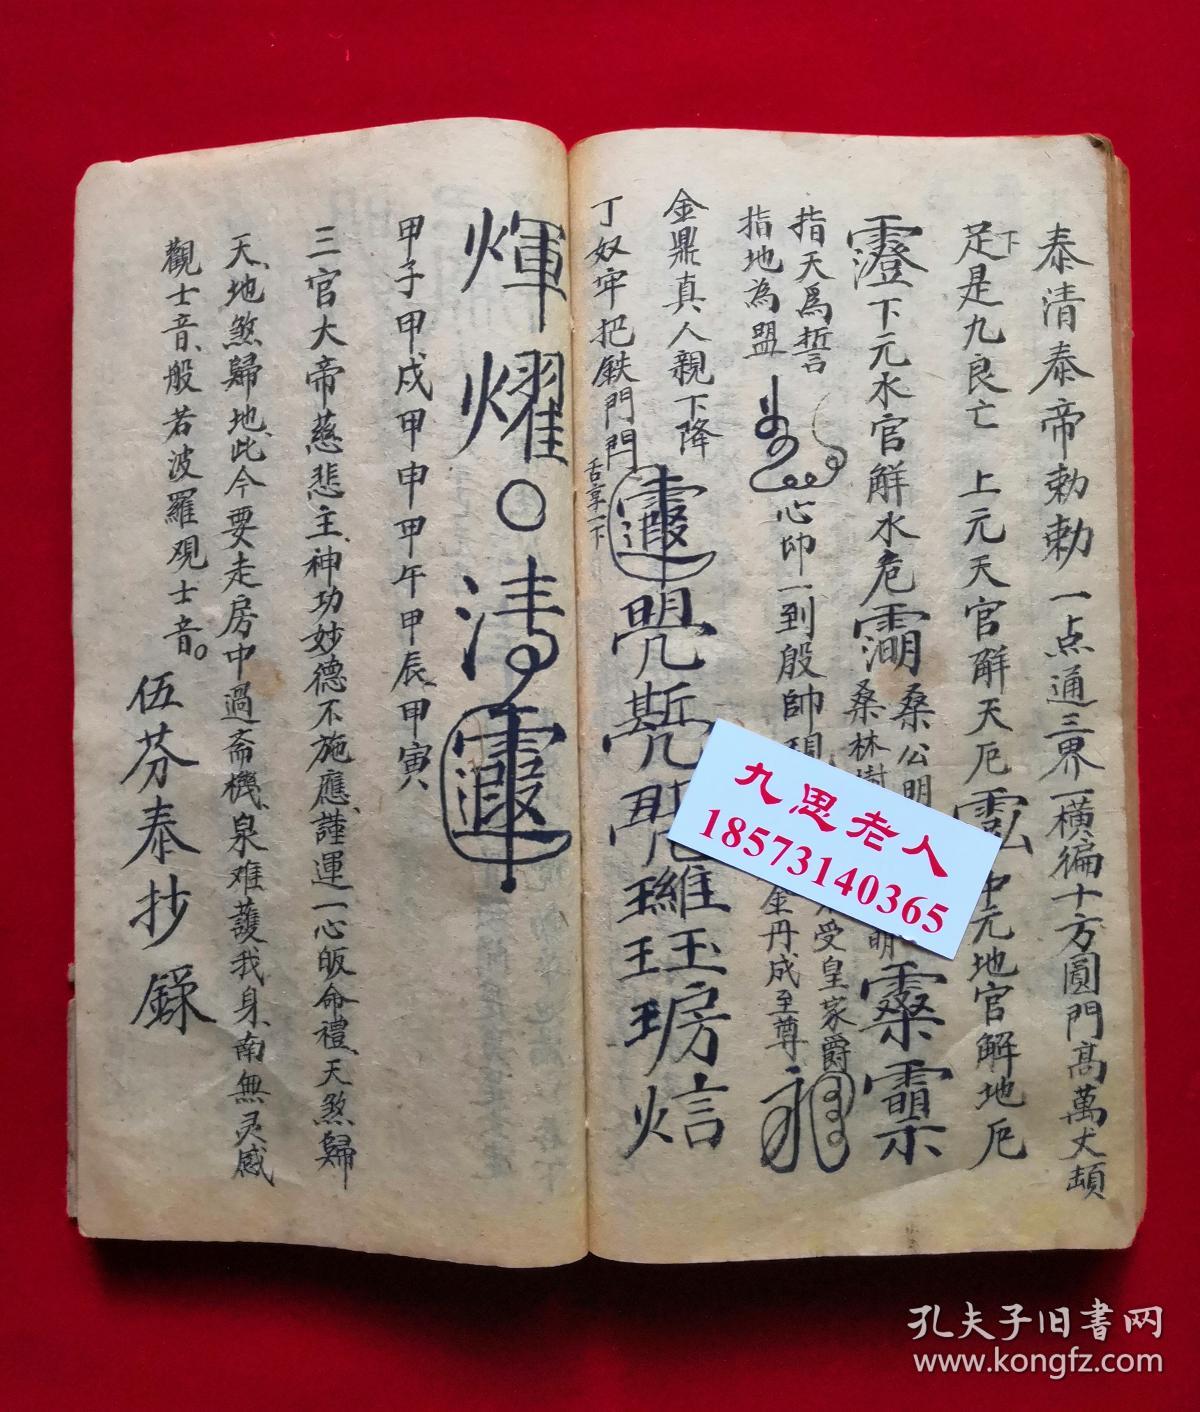 泰清泰帝勅勅一点通三界一橫徧十方圓門高萬丈頭
下
足是九良亡 上元天官解天厄 中元地官解地厄
下元水官解水危
桑公明
桑林樹
指天爲誓
指地為盟
心印一到殷帥現
受皇家爵
金丹成至尊
金鼎真人親下降
丁奴牢把鉄門門
舌享一下
玉房
輝耀〇清
甲子甲戍甲申甲午甲辰甲寅
三官大帝慈悲主、神功妙德不施應、謹運一心皈命禮、天煞歸
天、地煞歸地、此今要走房中過斋機、泉难護我身、南無灵感
觀士音、般若波羅观士音。
伍芬泰抄錄
九思老人
18573140365
孔夫子旧书网
www.kongfz.com